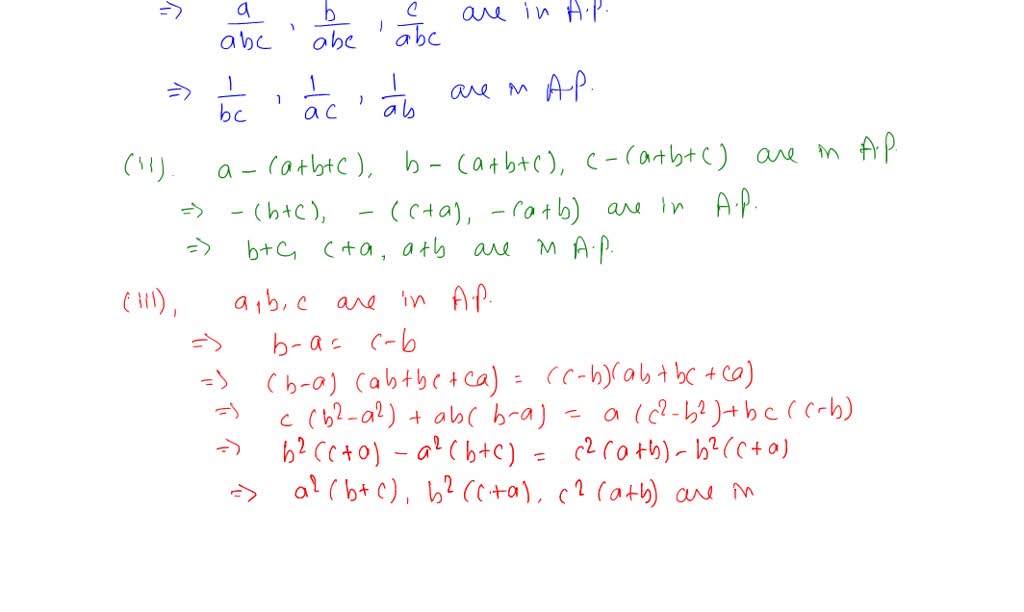 => a/abc, b/abc, c/abc are in A.P.
=> 1/bc, 1/ac, 1/ab are in A.P.
(ii). a-(a+b+c), b-(a+b+c), c-(a+b+c) are in A.P.
=> -(b+c), -(c+a), -(a+b) are in A.P.
=> b+c, c+a, a+b are in A.P.
(iii), a,b,c are in A.P.
=> b-a = c-b
=> (b-a) (ab+bc+ca) = (c-b)(ab+bc+ca)
=> c(b²-a²)+ab(b-a) = a(c²-b²)+bc(c-b)
=> b²(c+a)-a²(b+c) = c²(a+b)-b²(c+a)
=> a²(b+c), b²(c+a), c²(a+b) are in